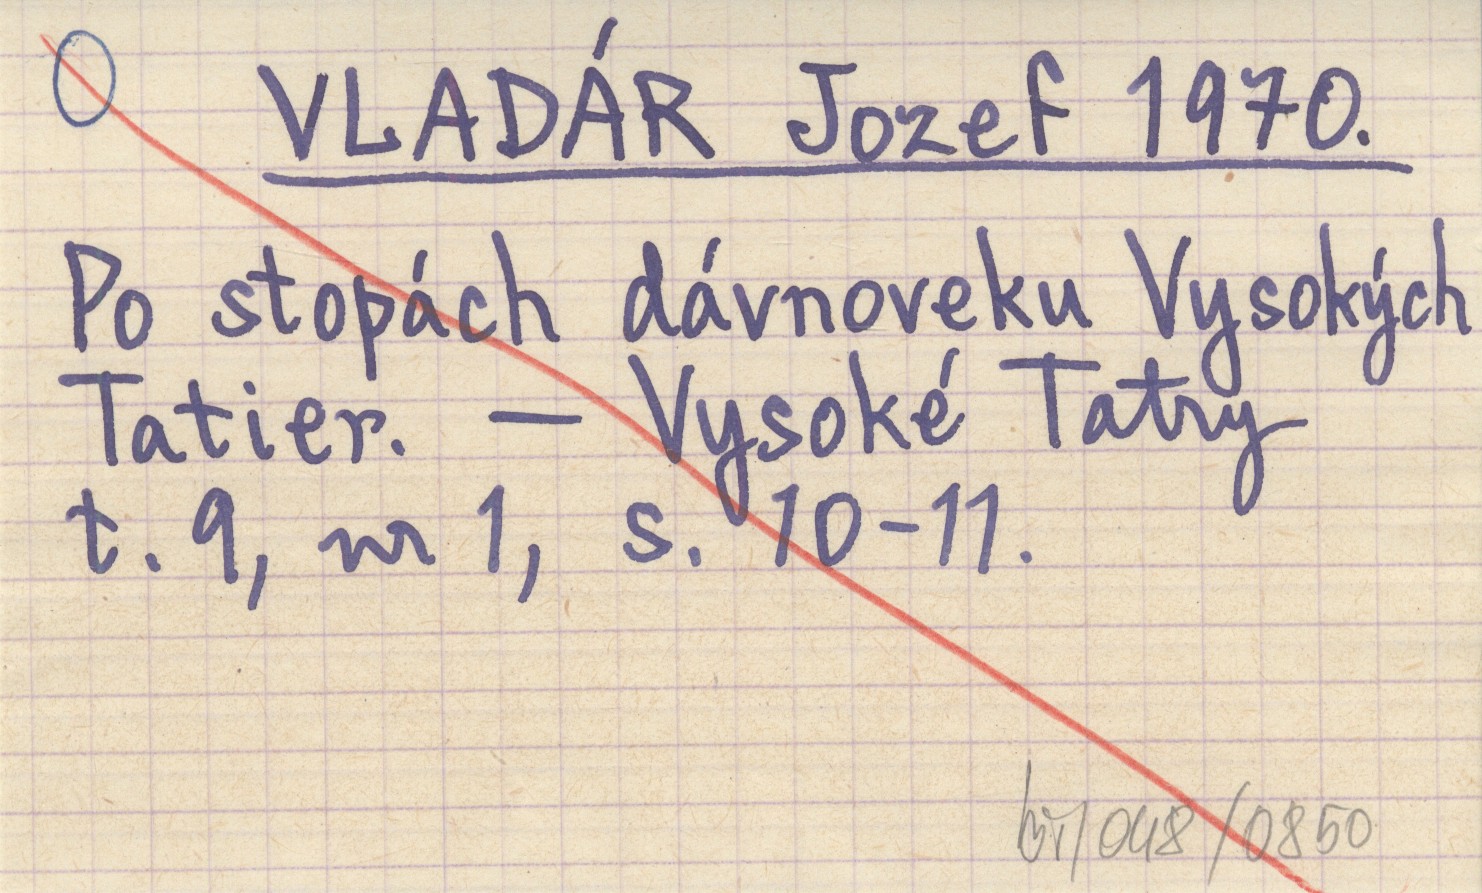 VLADÁR Jozef 1970.
Po stopách dávnoveku Vysokých
Tatier. — Vysoké Tatry
t. 9, nr 1, s. 10-11.
/048/0850